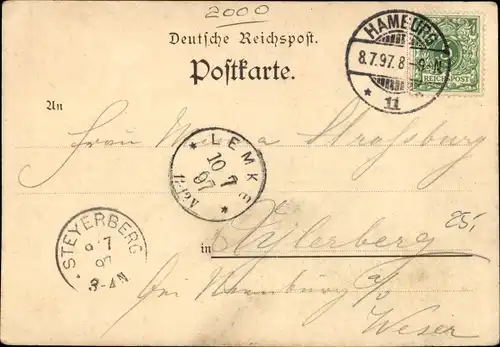 2000
Deutsche Reichspost.
Postkarte.
HAMBURG
8.7.97. 8-9 N
* 11
REICHSPOST
An
Frau
Strassburg
* LEMKE *
10
7
97
25,
STEYERBERG
9 7
97
3-4 N
in
bei Nienburg a/d
Weser